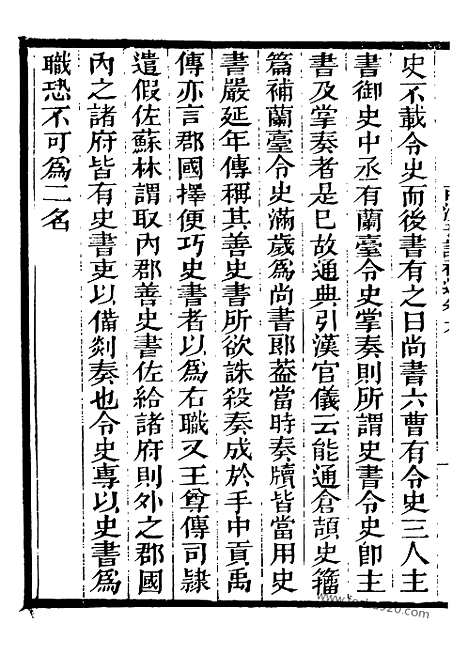 史不載令史而後書有之曰尚書六曹有令史三人主
書御史中丞有蘭臺令史掌奏則所謂史書令史卽主
書及掌奏者是巳故通典引漢官儀云能通倉頡史籀
篇補蘭臺令史滿歲爲尚書郎葢當時奏牘皆當用史
書嚴延年傳稱其善史書所欲誅殺奏成於手中貢禹
傳亦言郡國擇便巧史書者以爲右職又王尊傳司隷
遣假佐蘇林謂取內郡善史書佐給諸府則外之郡國
內之諸府皆有史書吏以備劾奏也令史專以史書爲
職恐不可爲二名